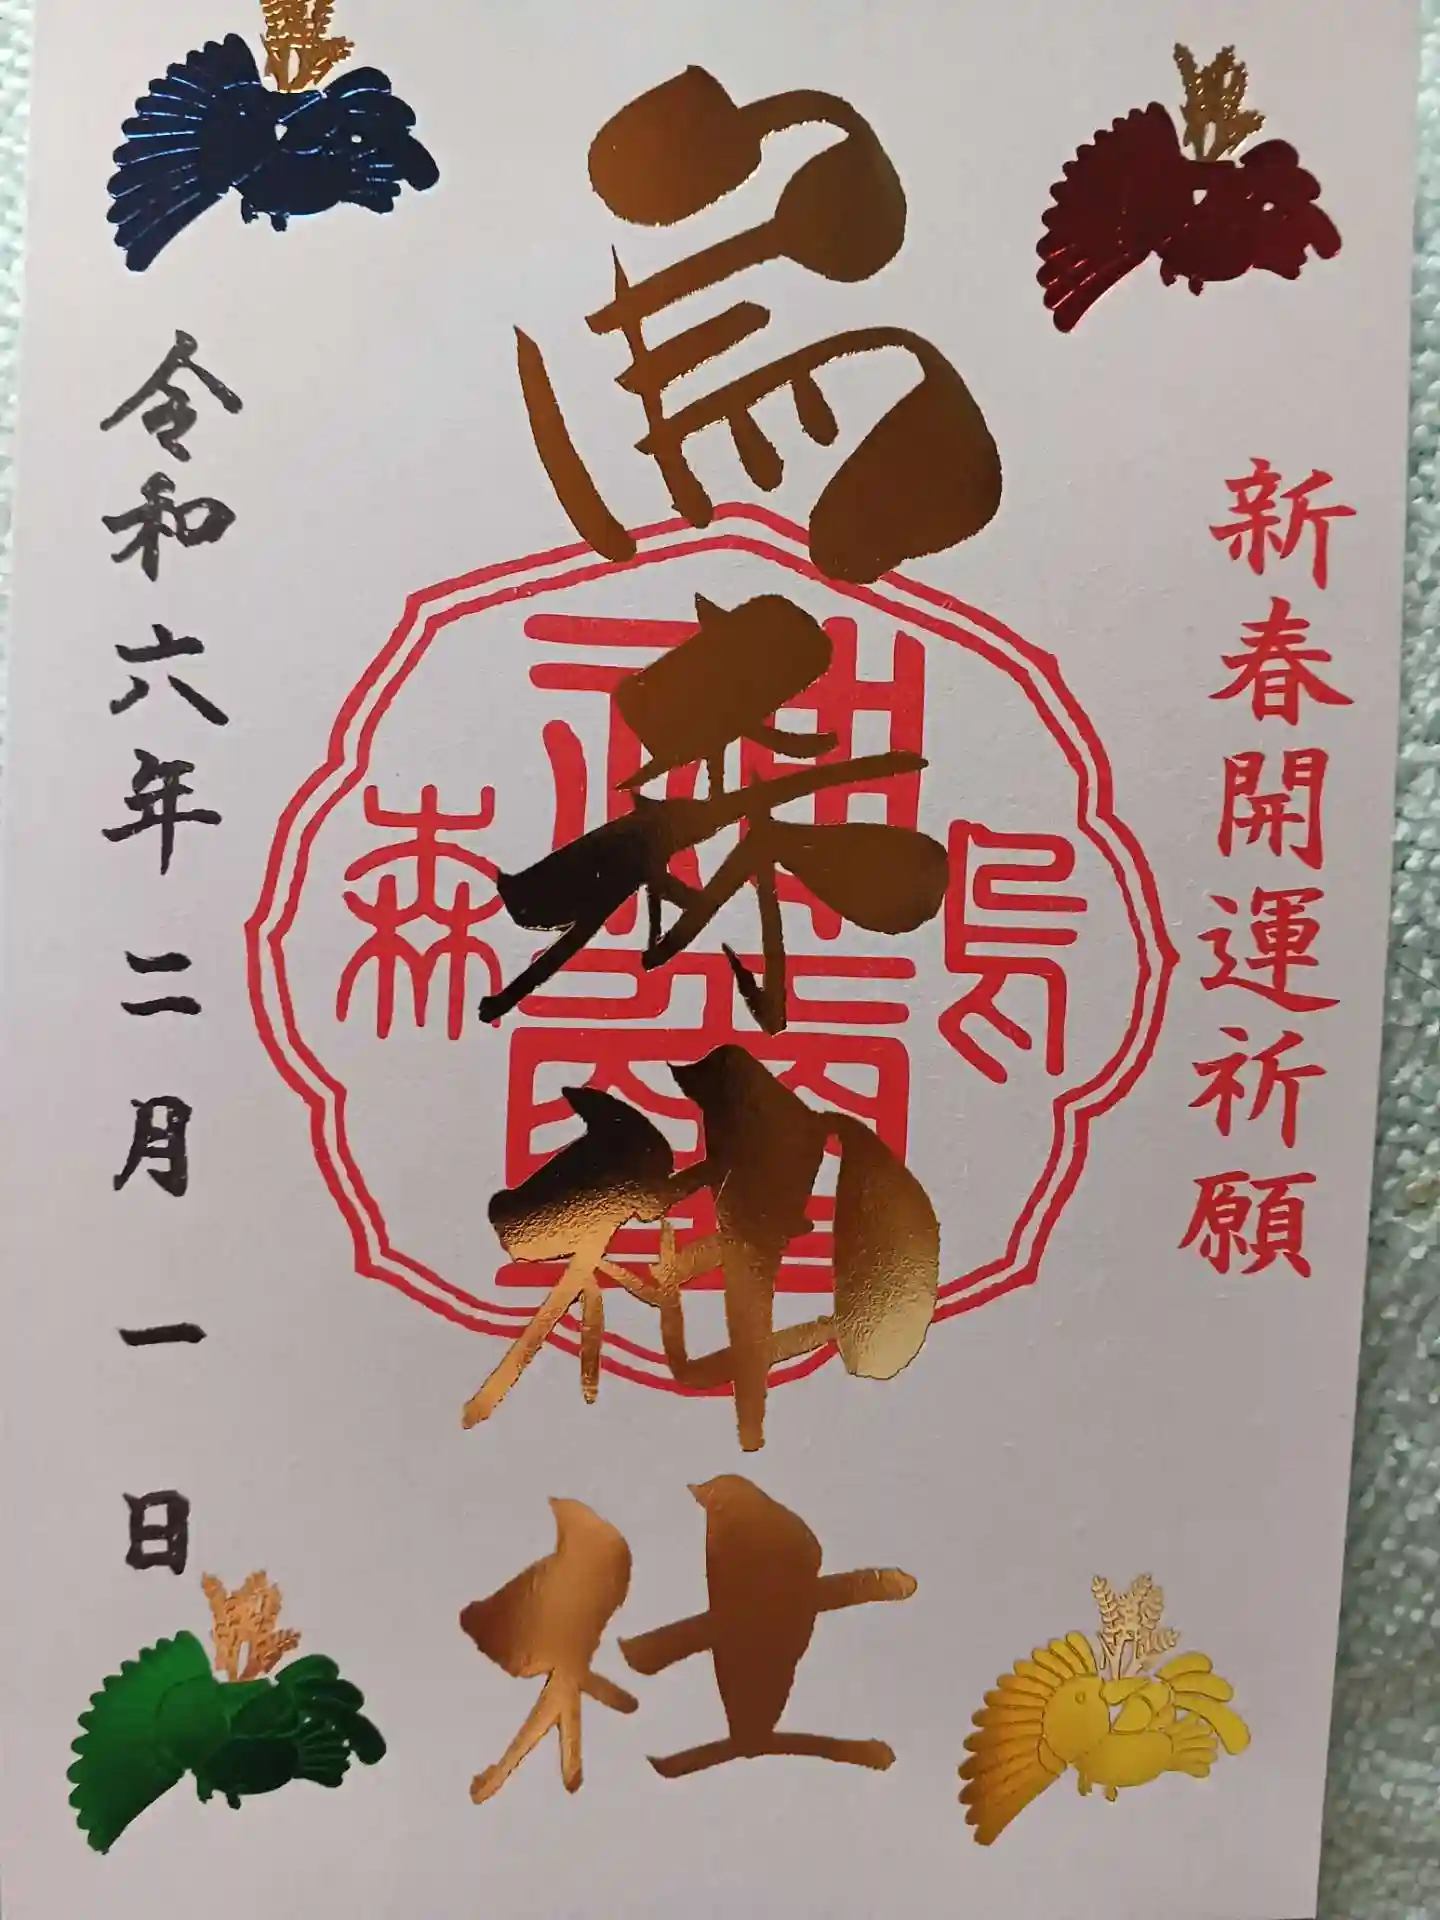 新春開運祈願
烏森神社
烏
神璽
森
令和六年二月一日